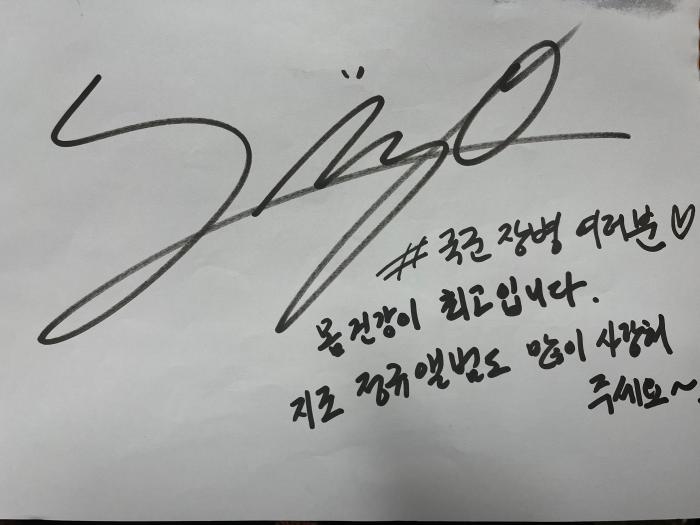 # 국군 장병 여러분 ♡
몸 건강이 최고입니다.
지조 정규앨범도 많이 사랑해
주세요~